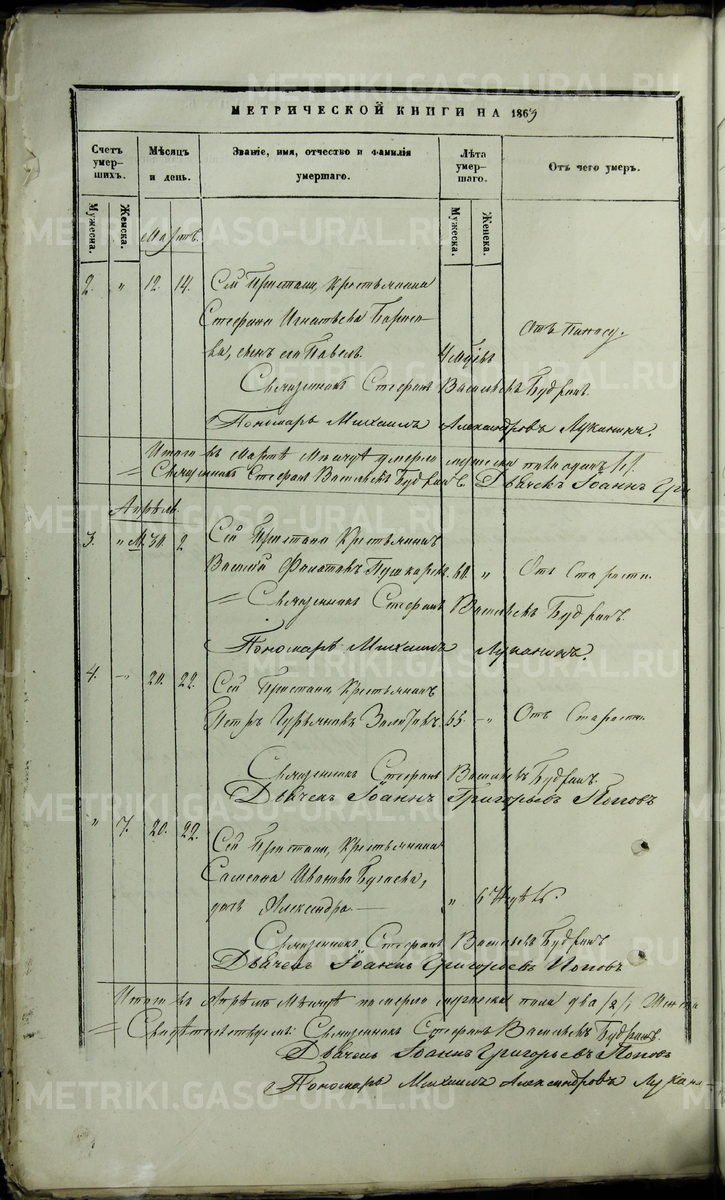 МЕТРИЧЕСКОЙ КНИГИ НА 1869
Счетъ умер-шихъ.
Мѣсяцъ и день.
Званіе, имя, отчество и фамилія умершаго.
Лѣта умер-шаго.
Отъ чего умеръ.
Мужеска.
Женска.
Мужеска.
Женска.
Мартъ.
2. " 12. 14. Сей Пристани, Крестьянина
Стефана Игнатьева
сынъ его Павелъ 4 Отъ Поносу.
Священникъ Стефанъ Васильевъ
Пономарь Михаилъ Александровъ Луканинъ.
Итого въ Мартѣ Мѣсяцѣ умерло мужеска пола одинъ /1/.
Священникъ Стефанъ Васильевъ Дьячекъ Іоаннъ Гри
Апрѣль.
3. " М. 30. 2 Сей Пристани Крестьянинъ
Василій Пушкаревъ 60. " Отъ Старости.
Священникъ Стефанъ Васильевъ
Пономарь Михаилъ Луканинъ.
4. " 20. 22. Сей Пристани, Крестьянинъ
Петръ Гурьяновъ 65. " Отъ Старости.
Священникъ Стефанъ Васильевъ
Дьячекъ Іоаннъ Григорьевъ Поповъ
" 7. 20. 22. Сей Пристани, Крестьянина
Иванова Бугаева,
дочь Александра " 6 Недѣль.
Священникъ Стефанъ Васильевъ
Дьячекъ Іоаннъ Григорьевъ Поповъ
Итого въ Апрѣлѣ Мѣсяцѣ померло мужеска пола два /2/, Женска
Свидѣтельствуемъ: Священникъ Стефанъ Васильевъ
Дьячекъ Іоаннъ Григорьевъ Поповъ
Пономарь Михаилъ Александровъ Лукани
METRIKI.GASO-URAL.RU